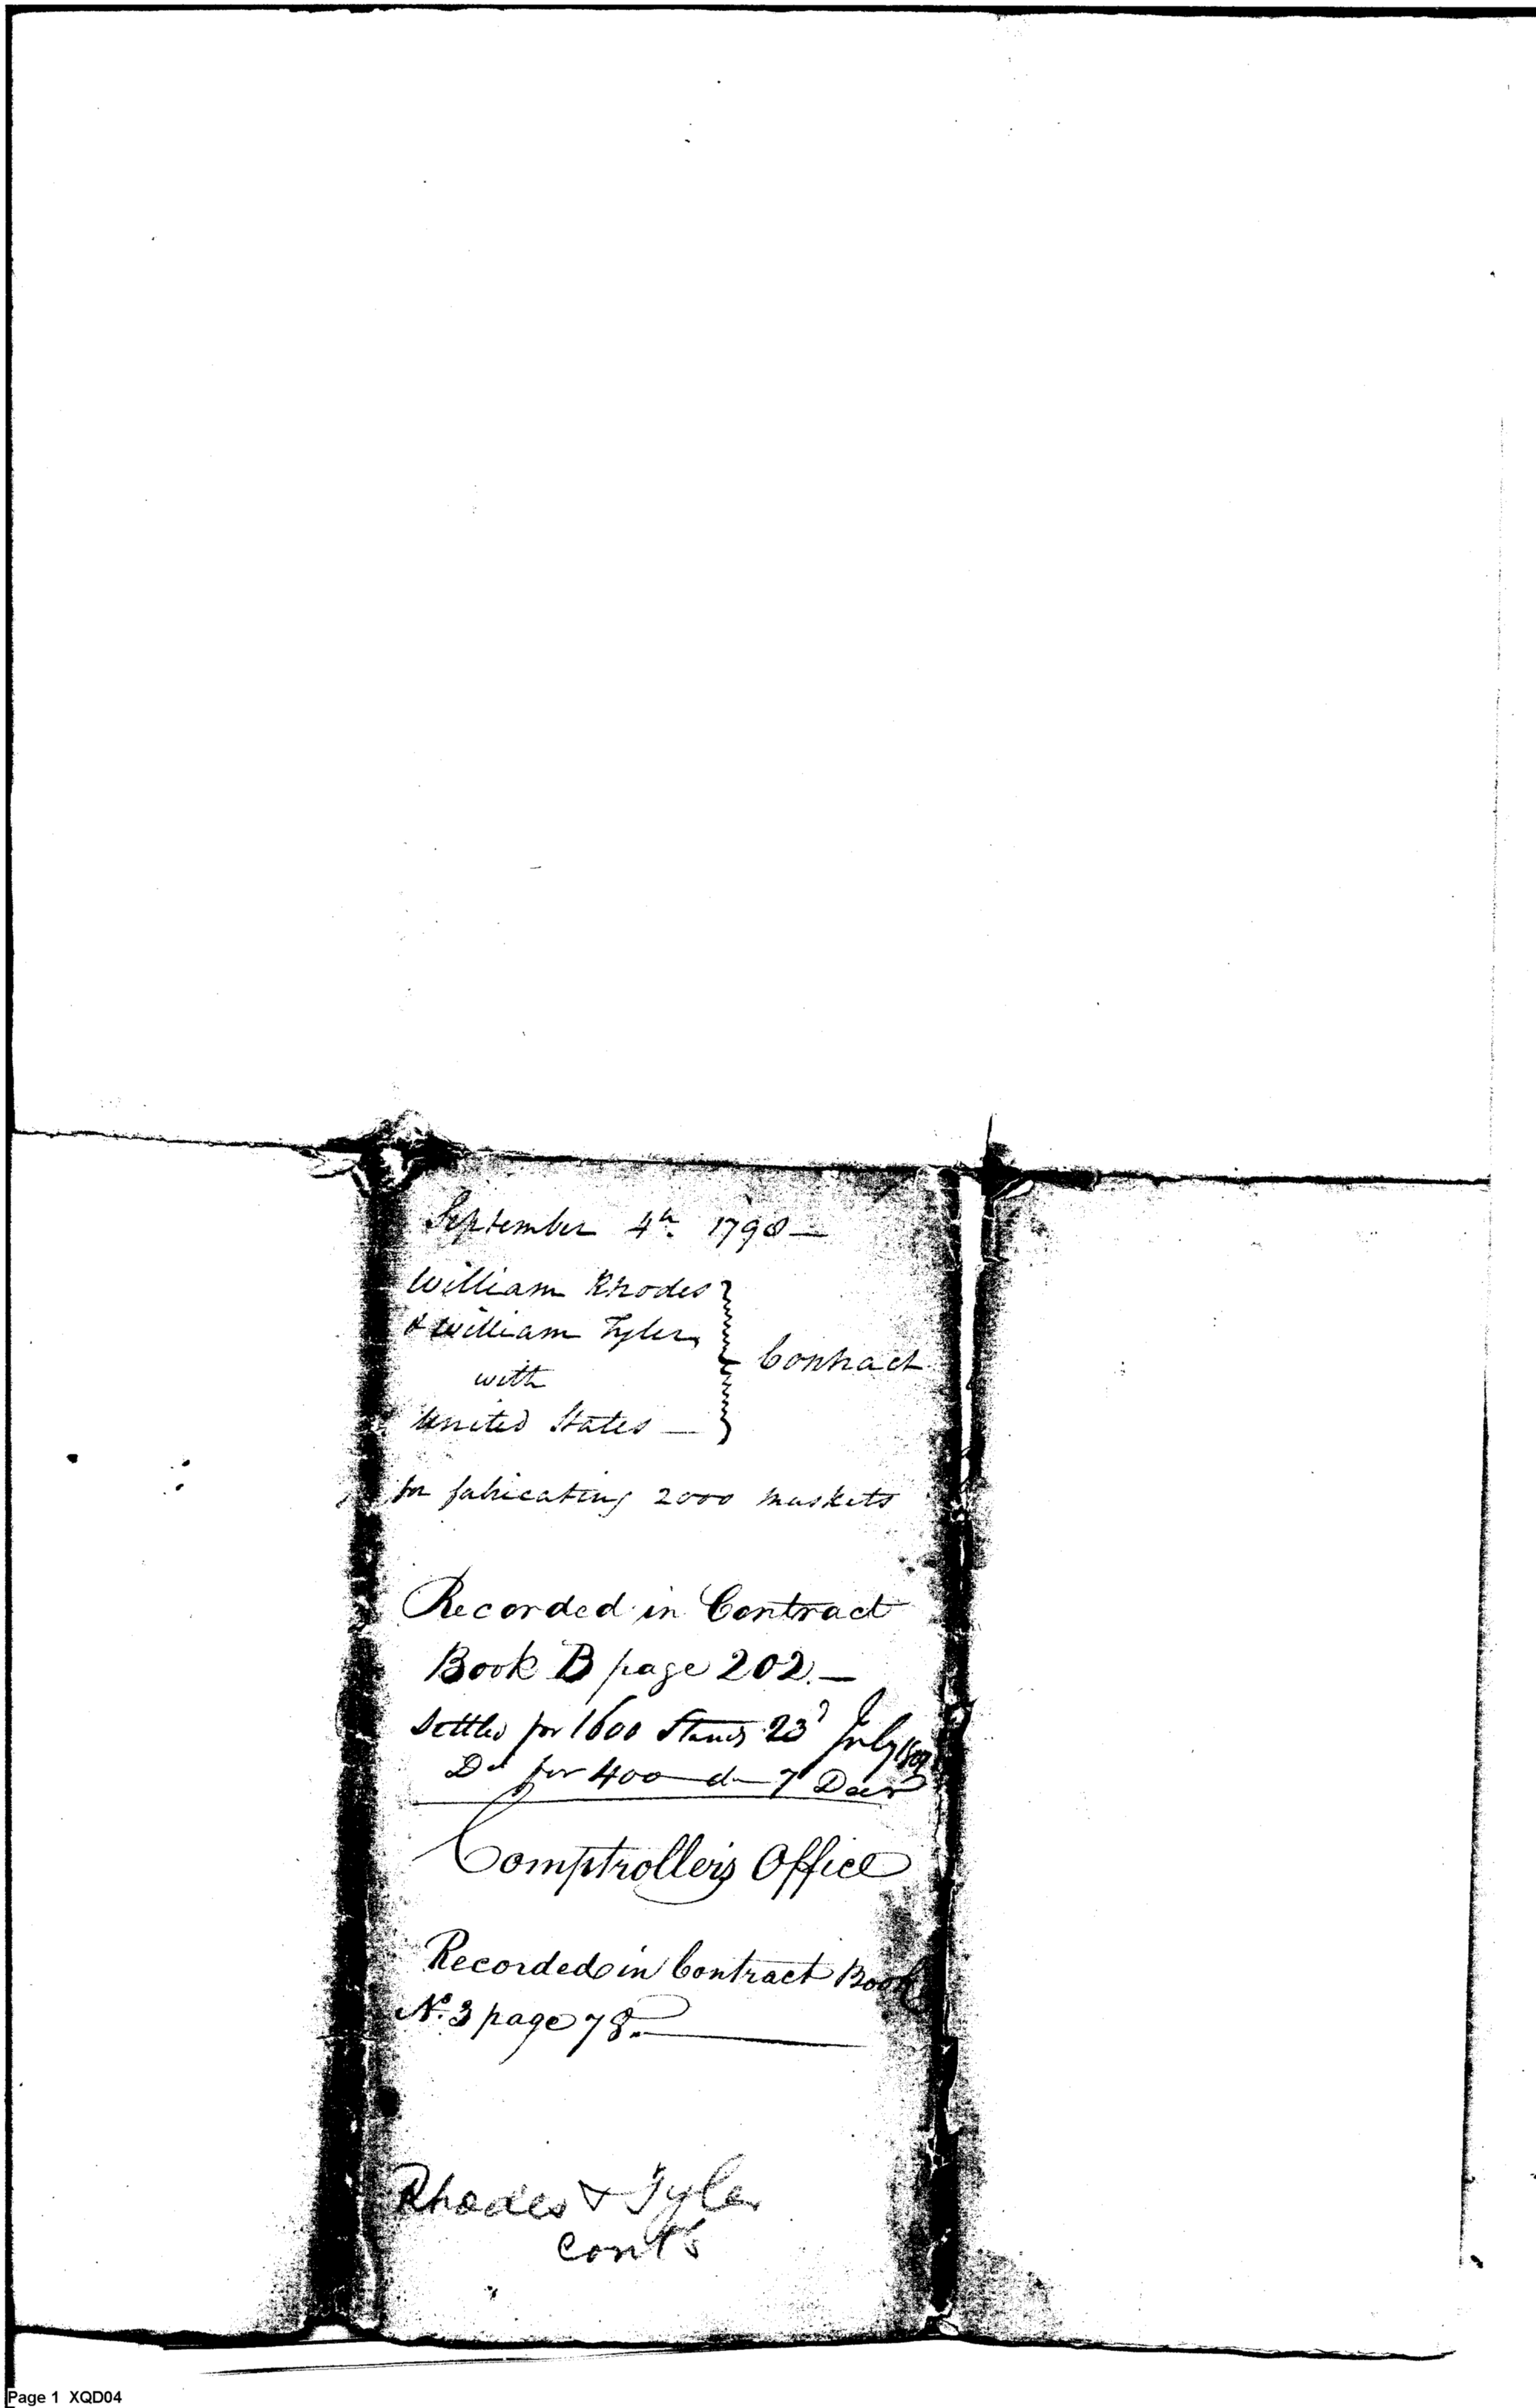 September 4th 1798 —
William Rhodes
& William Tyler
with
United States —
Contract
for fabricating 2000 muskets
Recorded in Contract
Book B page 202. —
Settled for 1600 Stands 23d July
Do for 400 do 7 Decr
Comptroller's Office
Recorded in Contract Book
No. 3 page 78.
Rhodes & Tyler
cont's
Page 1 XQD04